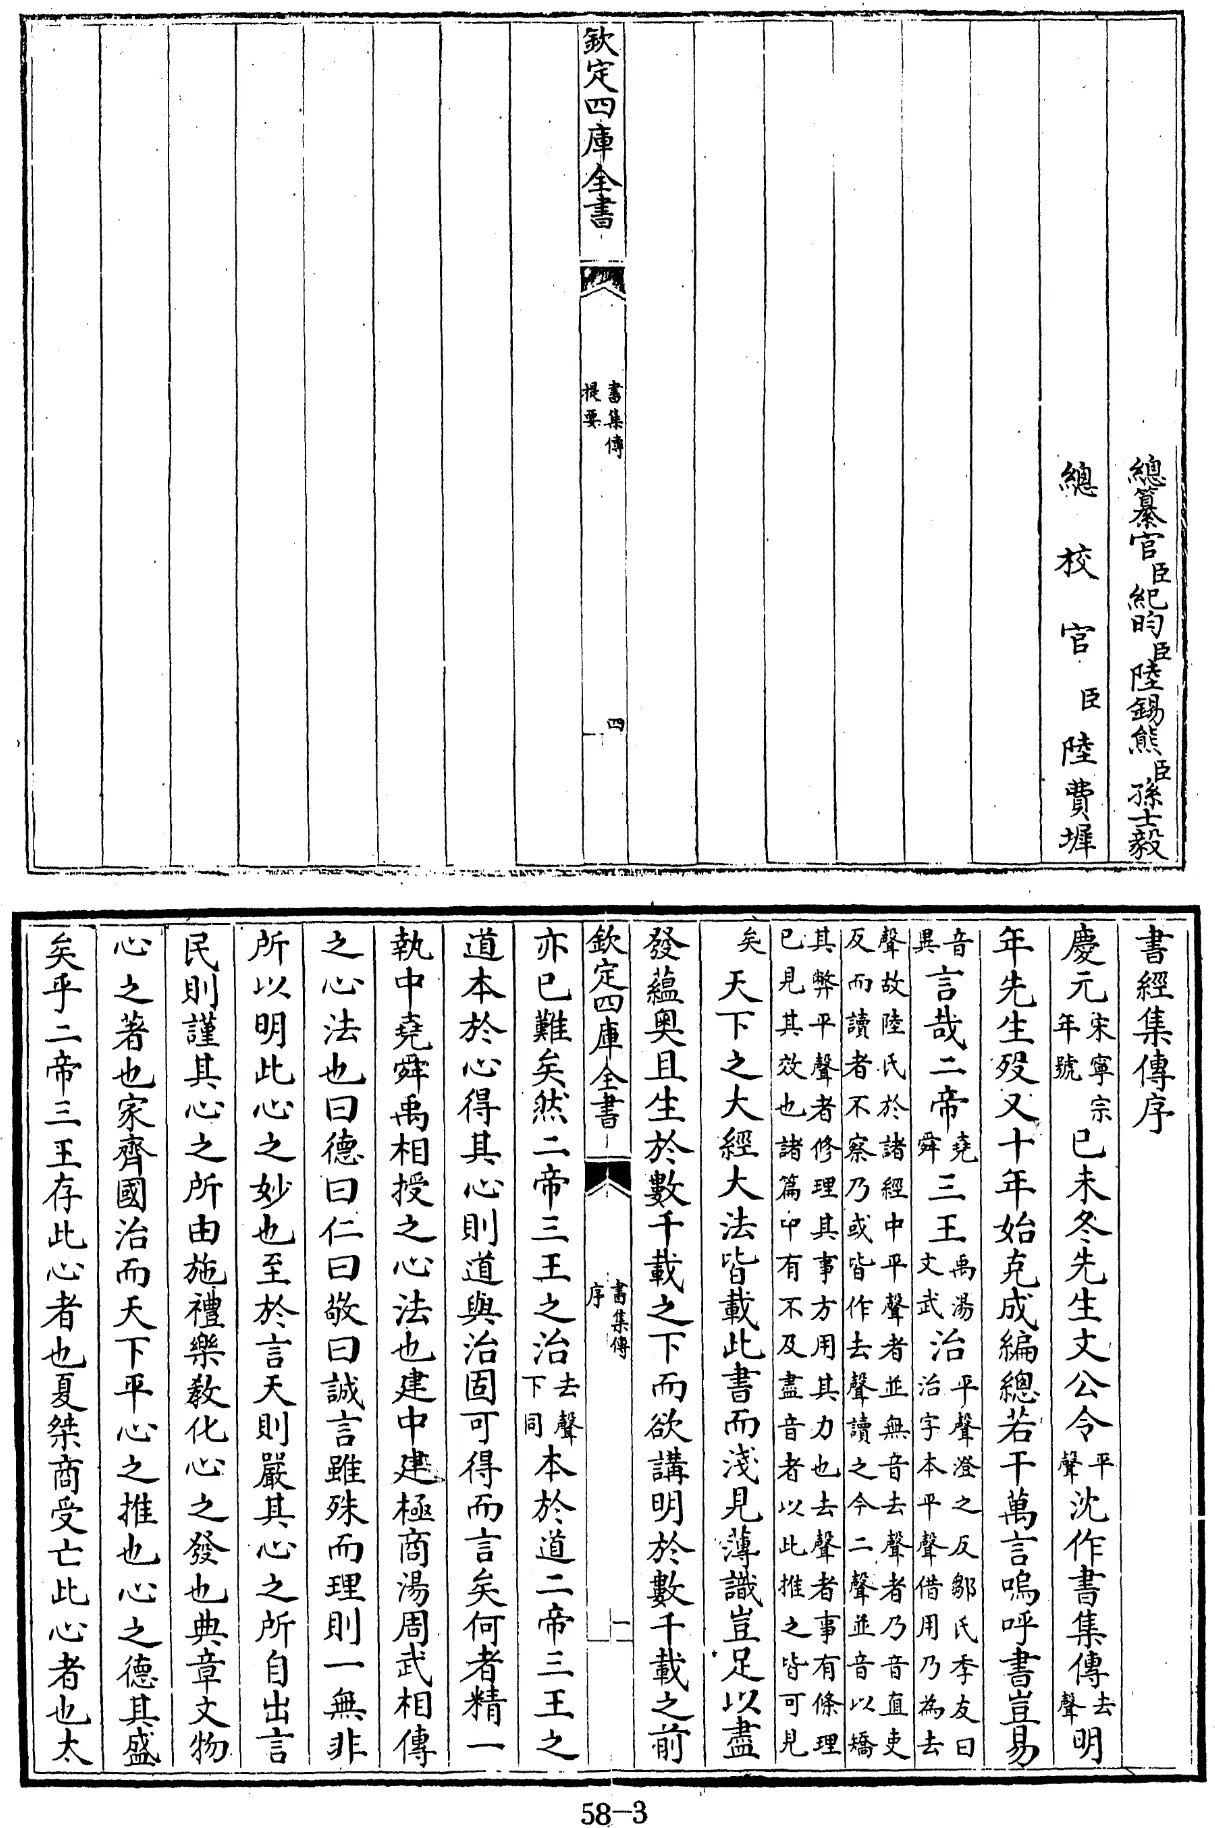 總纂官臣紀昀臣陸錫熊臣孫士毅
總校官臣陸費墀
欽定四庫全書
書集傳
提要
四
書經集傳序
慶元宋寧宗年號己未冬先生文公令平聲沈作書集傳去聲明
年先生歿又十年始克成編總若干萬言嗚呼書豈易
音異言哉二帝堯舜三王禹湯文武治平聲澄之反鄒氏季友曰治字本平聲借用乃為去
聲故陸氏於諸經中平聲者並無音去聲者乃音直吏
反而讀者不察乃或皆作去聲讀之今二聲並音以矯
其弊平聲者修理其事方用其力也去聲者事有條理
已見其效也諸篇中有不及盡音者以此推之皆可見
矣天下之大經大法皆載此書而淺見薄識豈足以盡
發蘊奧且生於數千載之下而欲講明於數千載之前
欽定四庫全書
書集傳
序
一
亦已難矣然二帝三王之治去聲下同本於道二帝三王之
道本於心得其心則道與治固可得而言矣何者精一
執中堯舜禹相授之心法也建中建極商湯周武相傳
之心法也曰德曰仁曰敬曰誠言雖殊而理則一無非
所以明此心之妙也至於言天則嚴其心之所自出言
民則謹其心之所由施禮樂教化心之發也典章文物
心之著也家齊國治而天下平心之推也心之德其盛
矣乎二帝三王存此心者也夏桀商受亡此心者也太
58-3